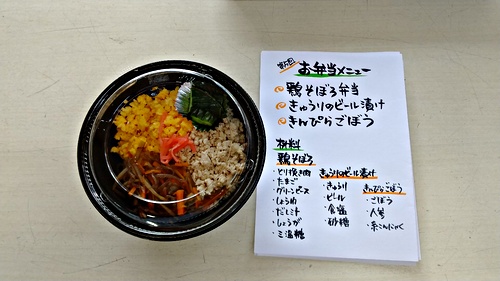 お弁当メニュー
鶏そぼろ弁当
きゅうりのビール漬け
きんぴらごぼう
材料
鶏そぼろ
・とり挽き肉
・たまご
・グリンピース
・しょうゆ
・だし汁
・しょうが
・三温糖
きゅうりのビール漬け
・きゅうり
・ビール
・食塩
・砂糖
きんぴらごぼう
・ごぼう
・人参
・糸こんにゃく